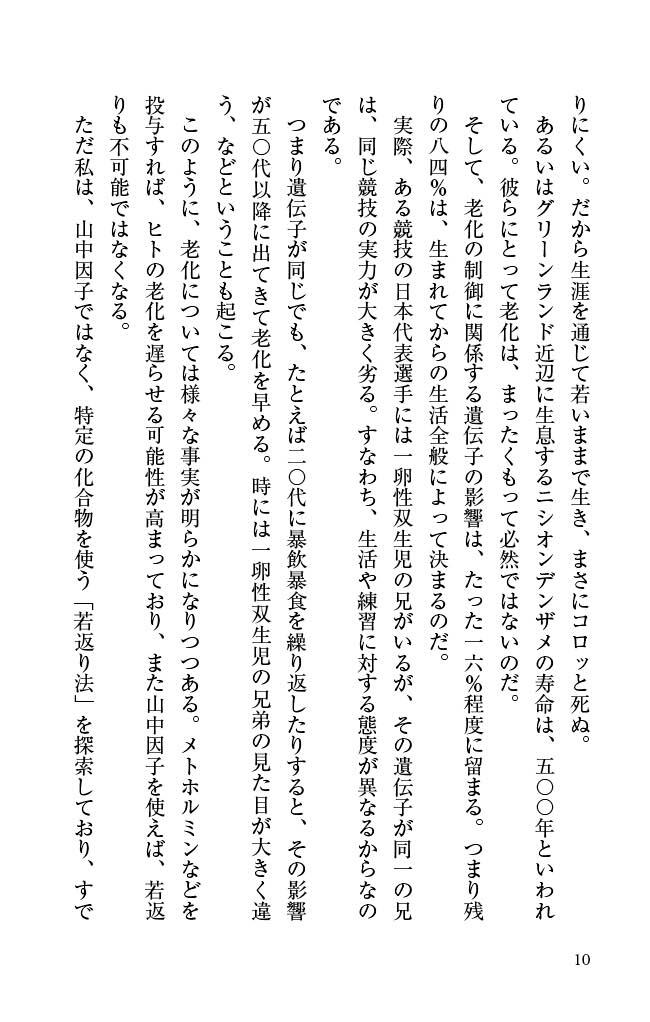 りにくい。だから生涯を通じて若いままで生き、まさにコロッと死ぬ。
あるいはグリーンランド近辺に生息するニシオンデンザメの寿命は、五〇〇年といわれ
ている。彼らにとって老化は、まったくもって必然ではないのだ。
そして、老化の制御に関係する遺伝子の影響は、たった一六％程度に留まる。つまり残
りの八四％は、生まれてからの生活全般によって決まるのだ。
実際、ある競技の日本代表選手には一卵性双生児の兄がいるが、その遺伝子が同一の兄
は、同じ競技の実力が大きく劣る。すなわち、生活や練習に対する態度が異なるからなの
である。
つまり遺伝子が同じでも、たとえば二〇代に暴飲暴食を繰り返したりすると、その影響
が五〇代以降に出てきて老化を早める。時には一卵性双生児の兄弟の見た目が大きく違
う、などということも起こる。
このように、老化については様々な事実が明らかになりつつある。メトホルミンなどを
投与すれば、ヒトの老化を遅らせる可能性が高まっており、また山中因子を使えば、若返
りも不可能ではなくなる。
ただ私は、山中因子ではなく、特定の化合物を使う「若返り法」を探索しており、すで
10